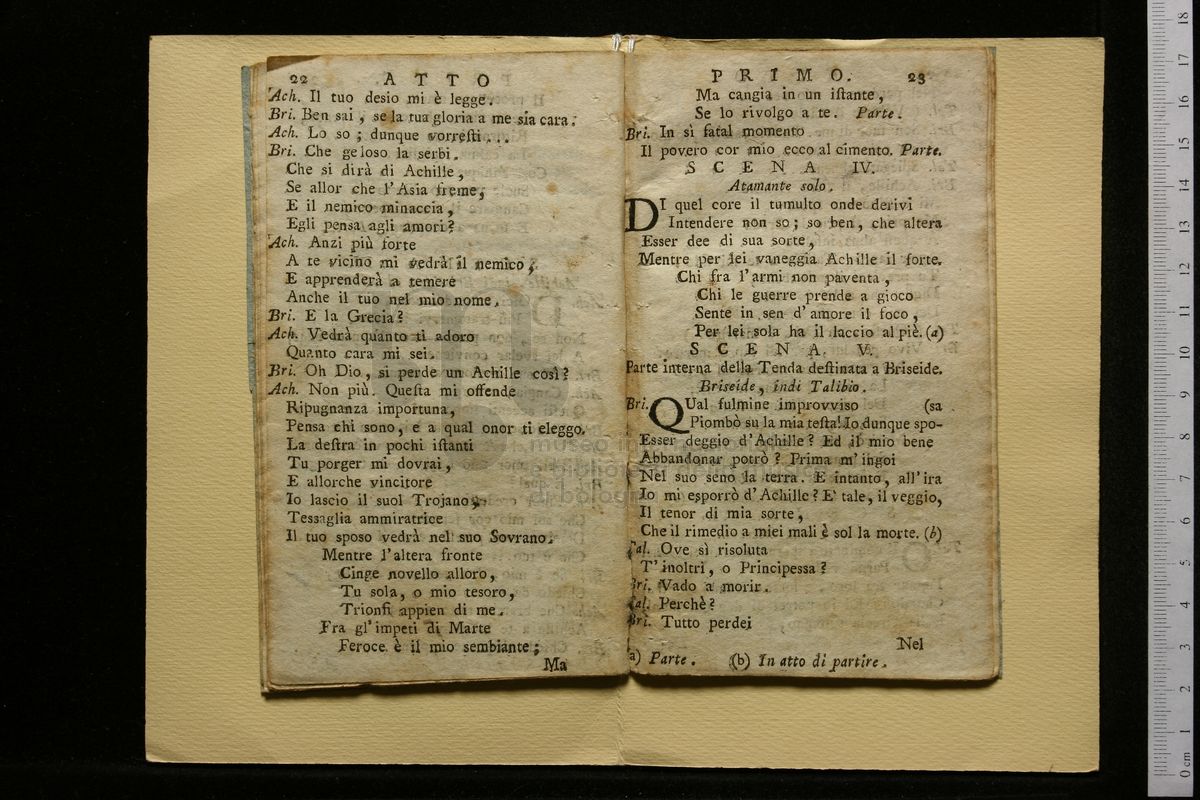 22 ATTO
Ach. Il tuo desio mi è legge.
Bri. Ben sai, se la tua gloria a me sia cara.
Ach. Lo so; dunque vorresti...
Bri. Che geloso la serbi.
Che si dirà di Achille,
Se allor che l'Asia freme,
E il nemico minaccia,
Egli pensa agli amori?
Ach. Anzi più forte
A te vicino mi vedrà il nemico,
E apprenderà a temere
Anche il tuo nel mio nome.
Bri. E la Grecia?
Ach. Vedrà quanto ti adoro
Quanto cara mi sei.
Bri. Oh Dio, si perde un Achille così?
Ach. Non più. Questa mi offende
Ripugnanza importuna,
Pensa chi sono, e a qual onor ti eleggo.
La destra in pochi istanti
Tu porger mi dovrai,
E allorche vincitore
Io lascio il suol Trojano,
Tessaglia ammiratrice
Il tuo sposo vedrà nel suo Sovrano.
Mentre l'altera fronte
Cinge novello alloro,
Tu sola, o mio tesoro,
Trionfi appien di me.
Fra gl'impeti di Marte
Feroce è il mio sembiante;
Ma
PRIMO. 23
Ma cangia in un istante,
Se lo rivolgo a te. Parte.
Bri. In sì fatal momento
Il povero cor mio ecco al cimento. Parte.
SCENA IV.
Atamante solo.
DI quel core il tumulto onde derivi
Intendere non so; so ben, che altera
Esser dee di sua sorte,
Mentre per lei vaneggia Achille il forte.
Chi fra l'armi non paventa,
Chi le guerre prende a gioco
Sente in sen d'amore il foco,
Per lei sola ha il laccio al piè. (a)
SCENA. V.
Parte interna della Tenda destinata a Briseide.
Briseide, indi Talibio.
Bri. QUal fulmine improvviso (sa
Piombò su la mia testa! Io dunque spo-
Esser deggio d'Achille? Ed il mio bene
Abbandonar potrò? Prima m'ingoi
Nel suo seno la terra. E intanto, all'ira
Io mi esporrò d'Achille? E' tale, il veggio,
Il tenor di mia sorte,
Che il rimedio a miei mali è sol la morte. (b)
Tal. Ove sì risoluta
T'inoltri, o Principessa?
Bri. Vado a morir.
Tal. Perchè?
Bri. Tutto perdei
Nel
(a) Parte. (b) In atto di partire.